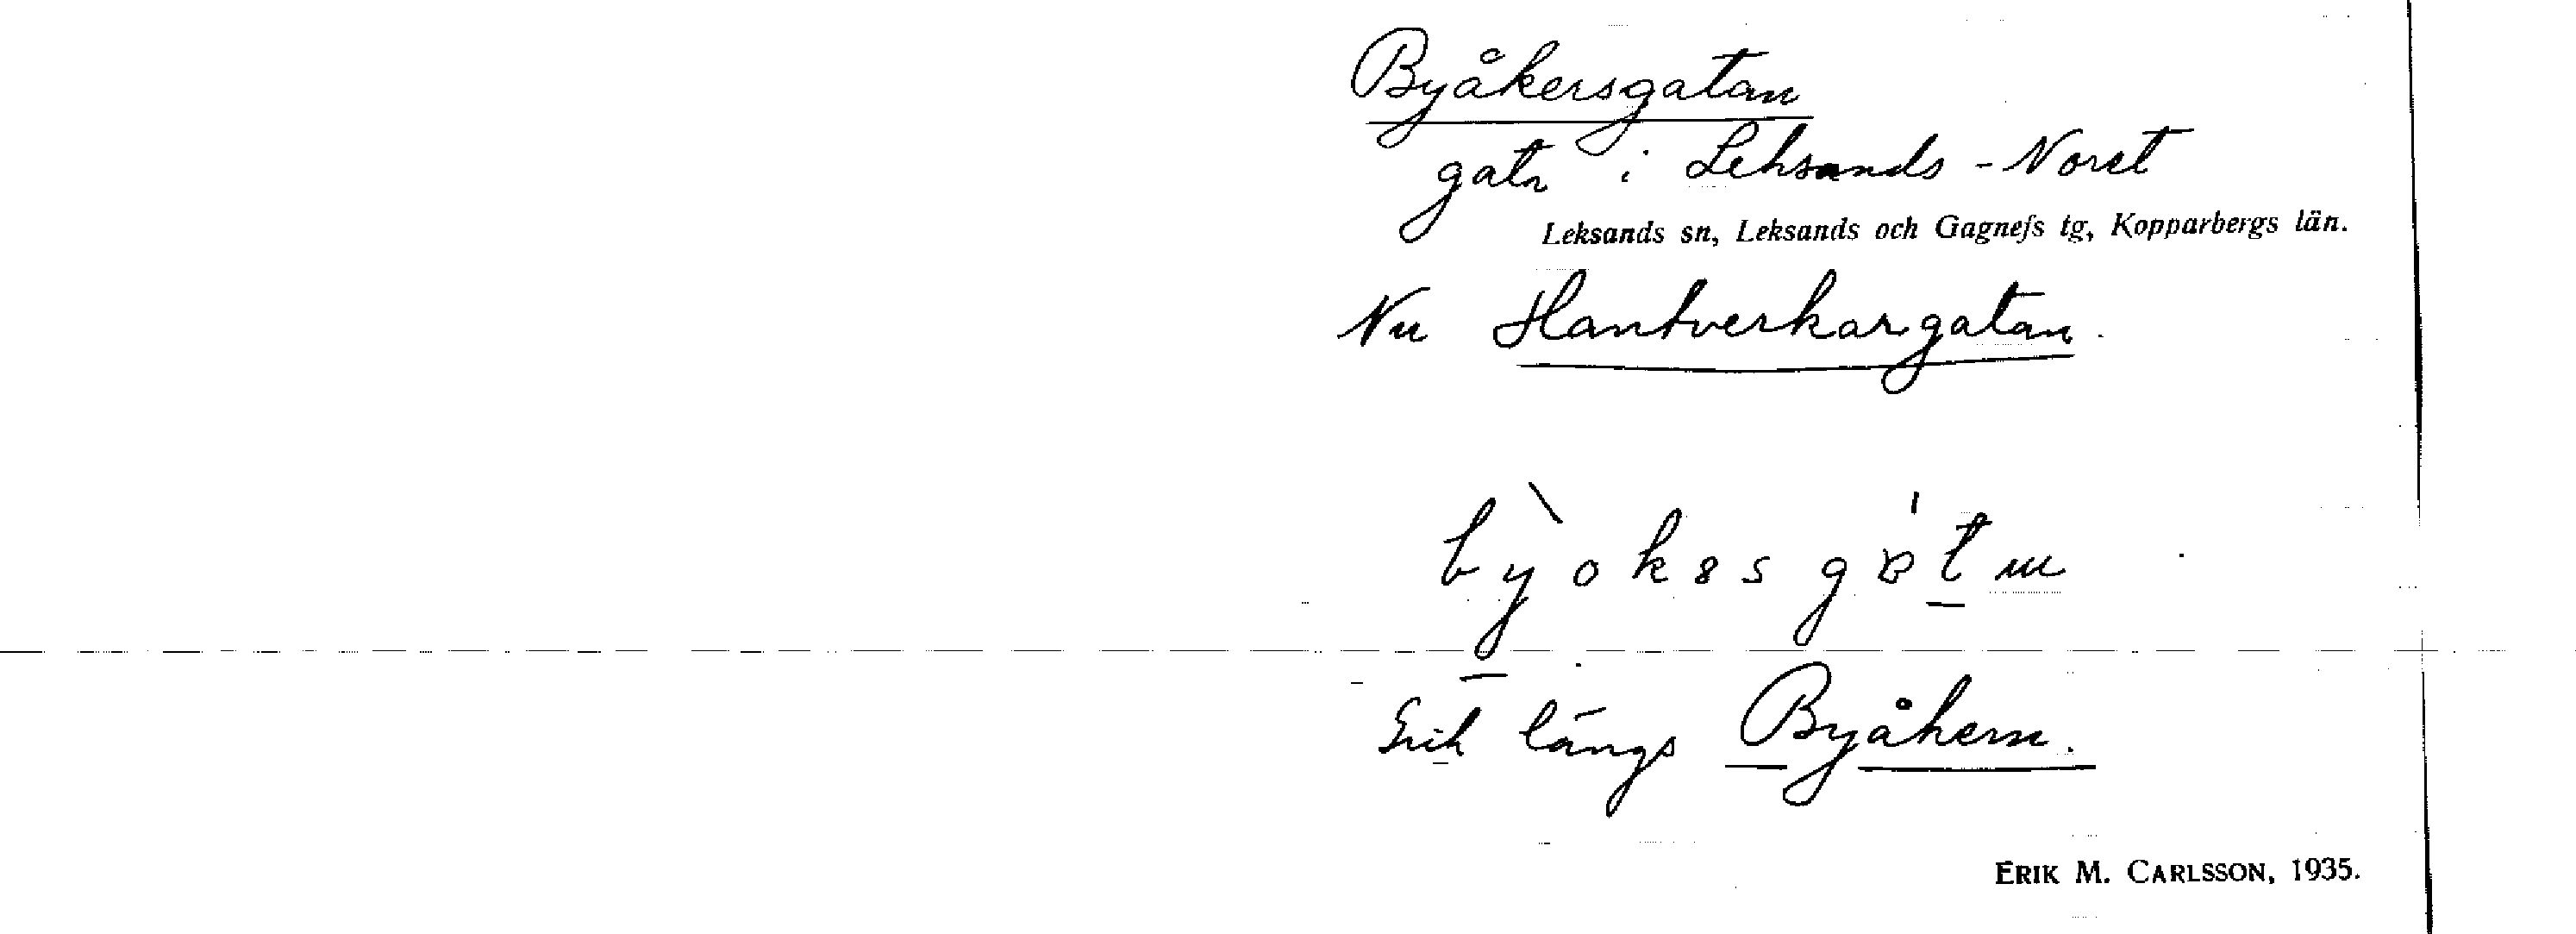 Byåkersgatan
gata i Leksands-Noret
Leksands sn, Leksands och Gagnefs tg, Kopparbergs län.
Nu Hantverkargatan.
längs Byåkern.
ERIK M. CARLSSON, 1935.